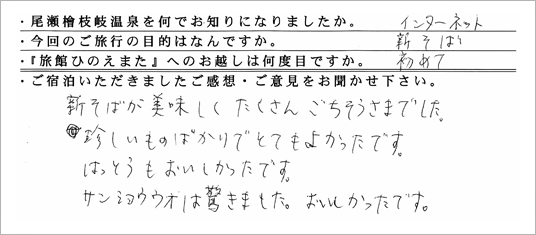 ・尾瀬檜枝岐温泉を何でお知りになりましたか。 インターネット
・今回のご旅行の目的はなんですか。 新そば
・『旅館ひのえまた』へのお越しは何度目ですか。 初めて
・ご宿泊いただきましたご感想・ご意見をお聞かせ下さい。
新そばが美味しく たくさん ごちそうさまでした。
珍しいものばかりでとてもよかったです。
はっとうもおいしかったです。
サンショウウオは驚きました。おいしかったです。